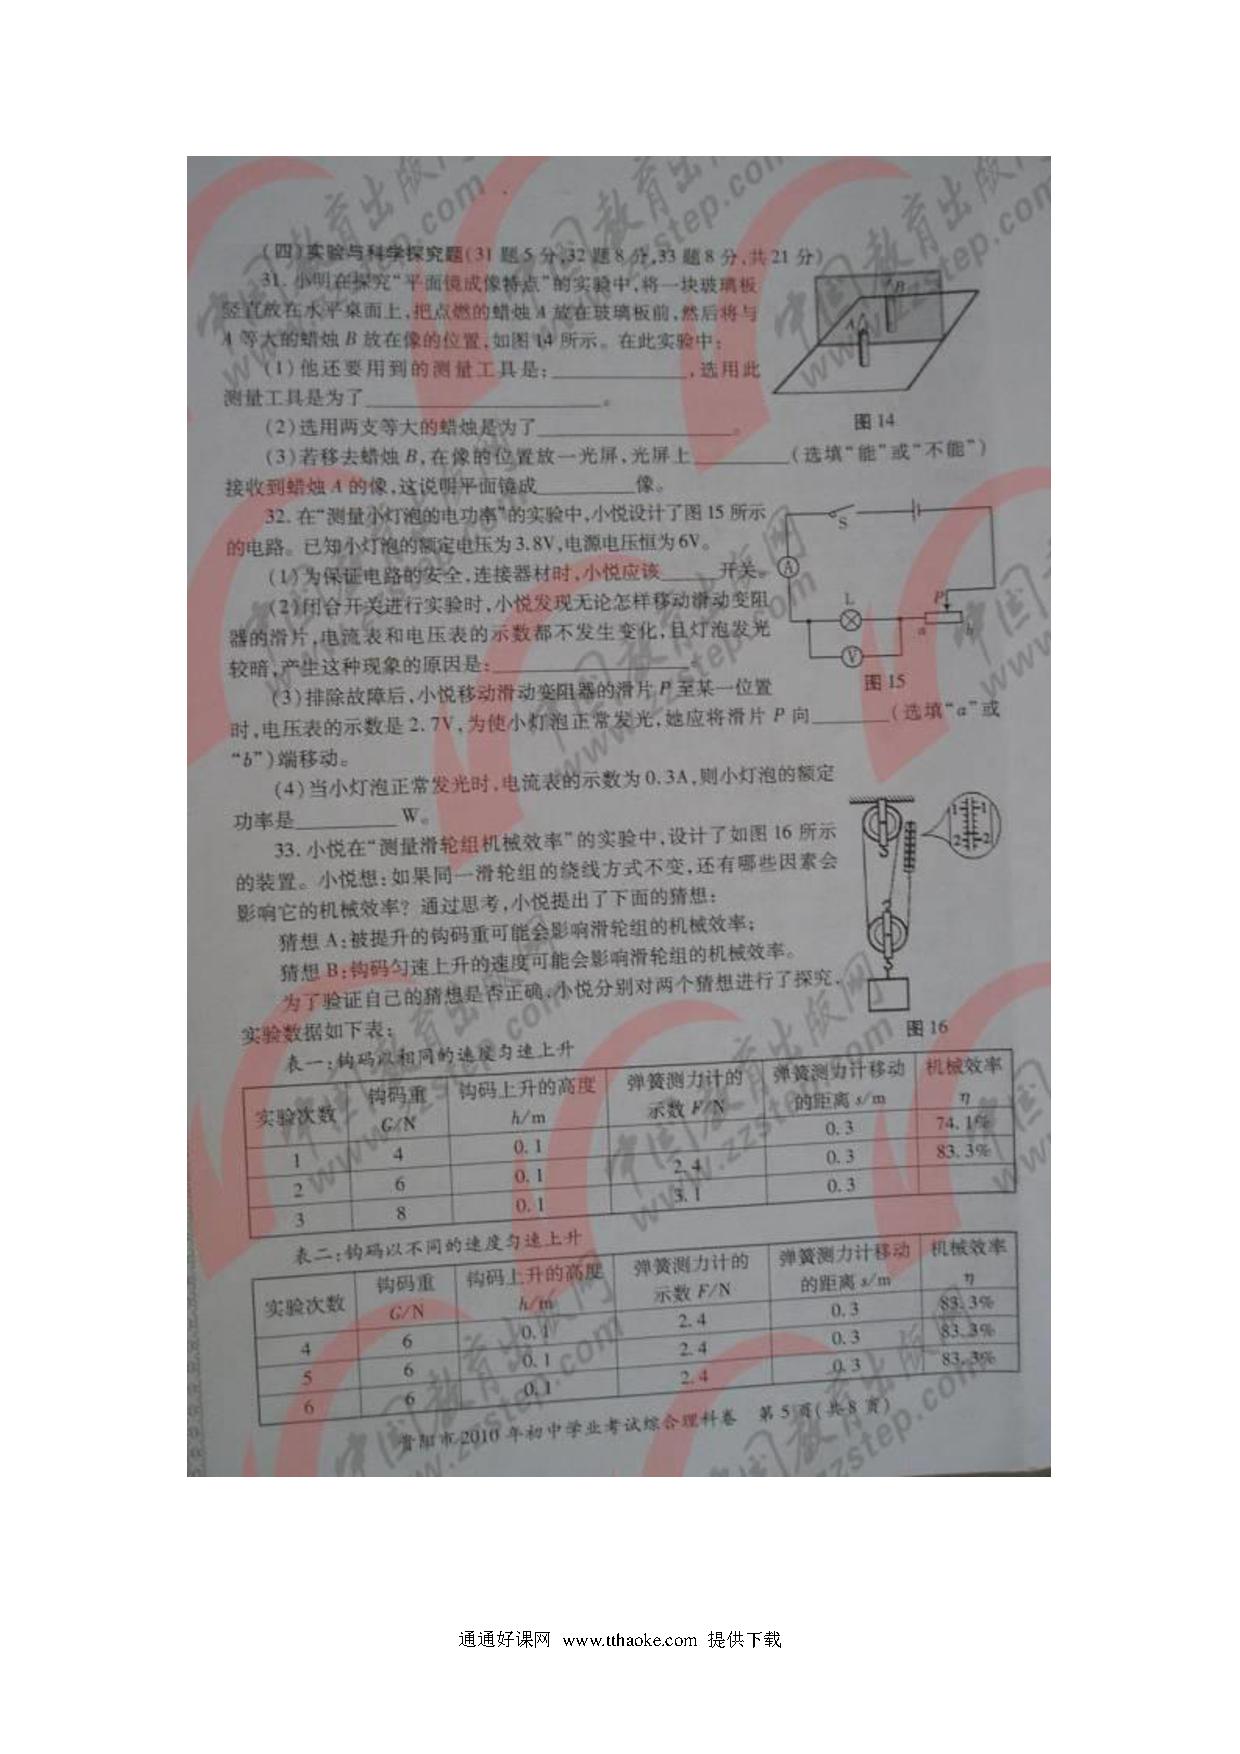 (四)实验与科学探究题(31题5分,32题8分,33题8分,共21分)
31.小明在探究“平面镜成像特点”的实验中,将一块玻璃板
竖直放在水平桌面上,把点燃的蜡烛A放在玻璃板前,然后将与
A等大的蜡烛B放在像的位置,如图14所示。在此实验中:
(1)他还要用到的测量工具是:____________,选用此
测量工具是为了____________________。
(2)选用两支等大的蜡烛是为了________________。
(3)若移去蜡烛B,在像的位置放一光屏,光屏上________(选填“能”或“不能”)
接收到蜡烛A的像,这说明平面镜成________像。
B
A
图14
32.在“测量小灯泡的电功率”的实验中,小悦设计了图15所示
的电路。已知小灯泡的额定电压为3.8V,电源电压恒为6V。
(1)为保证电路的安全,连接器材时,小悦应该_____开关。
(2)闭合开关进行实验时,小悦发现无论怎样移动滑动变阻
器的滑片,电流表和电压表的示数都不发生变化,且灯泡发光
较暗,产生这种现象的原因是:________________。
(3)排除故障后,小悦移动滑动变阻器的滑片P至某一位置
时,电压表的示数是2.7V,为使小灯泡正常发光,她应将滑片P向______(选填“a”或
“b”)端移动。
(4)当小灯泡正常发光时,电流表的示数为0.3A,则小灯泡的额定
功率是________W。
S
A
L
P
a
b
V
图15
33.小悦在“测量滑轮组机械效率”的实验中,设计了如图16所示
的装置。小悦想:如果同一滑轮组的绕线方式不变,还有哪些因素会
影响它的机械效率?通过思考,小悦提出了下面的猜想:
猜想A:被提升的钩码重可能会影响滑轮组的机械效率;
猜想B:钩码匀速上升的速度可能会影响滑轮组的机械效率。
为了验证自己的猜想是否正确,小悦分别对两个猜想进行了探究,
实验数据如下表:
1 1
2 2
图16
表一:钩码以相同的速度匀速上升
实验次数 钩码重G/N 钩码上升的高度h/m 弹簧测力计的示数F/N 弹簧测力计移动的距离s/m 机械效率η
1 4 0.1 0.3 74.1%
2 6 0.1 2.4 0.3 83.3%
3 8 0.1 3.1 0.3
表二:钩码以不同的速度匀速上升
实验次数 钩码重G/N 钩码上升的高度h/m 弹簧测力计的示数F/N 弹簧测力计移动的距离s/m 机械效率η
4 6 0.1 2.4 0.3 83.3%
5 6 0.1 2.4 0.3 83.3%
6 6 0.1 2.4 0.3 83.3%
贵阳市2010年初中学业考试综合理科卷 第5页(共8页)
中国教育出版网
www.zzstep.com
通通好课网 www.tthaoke.com 提供下载